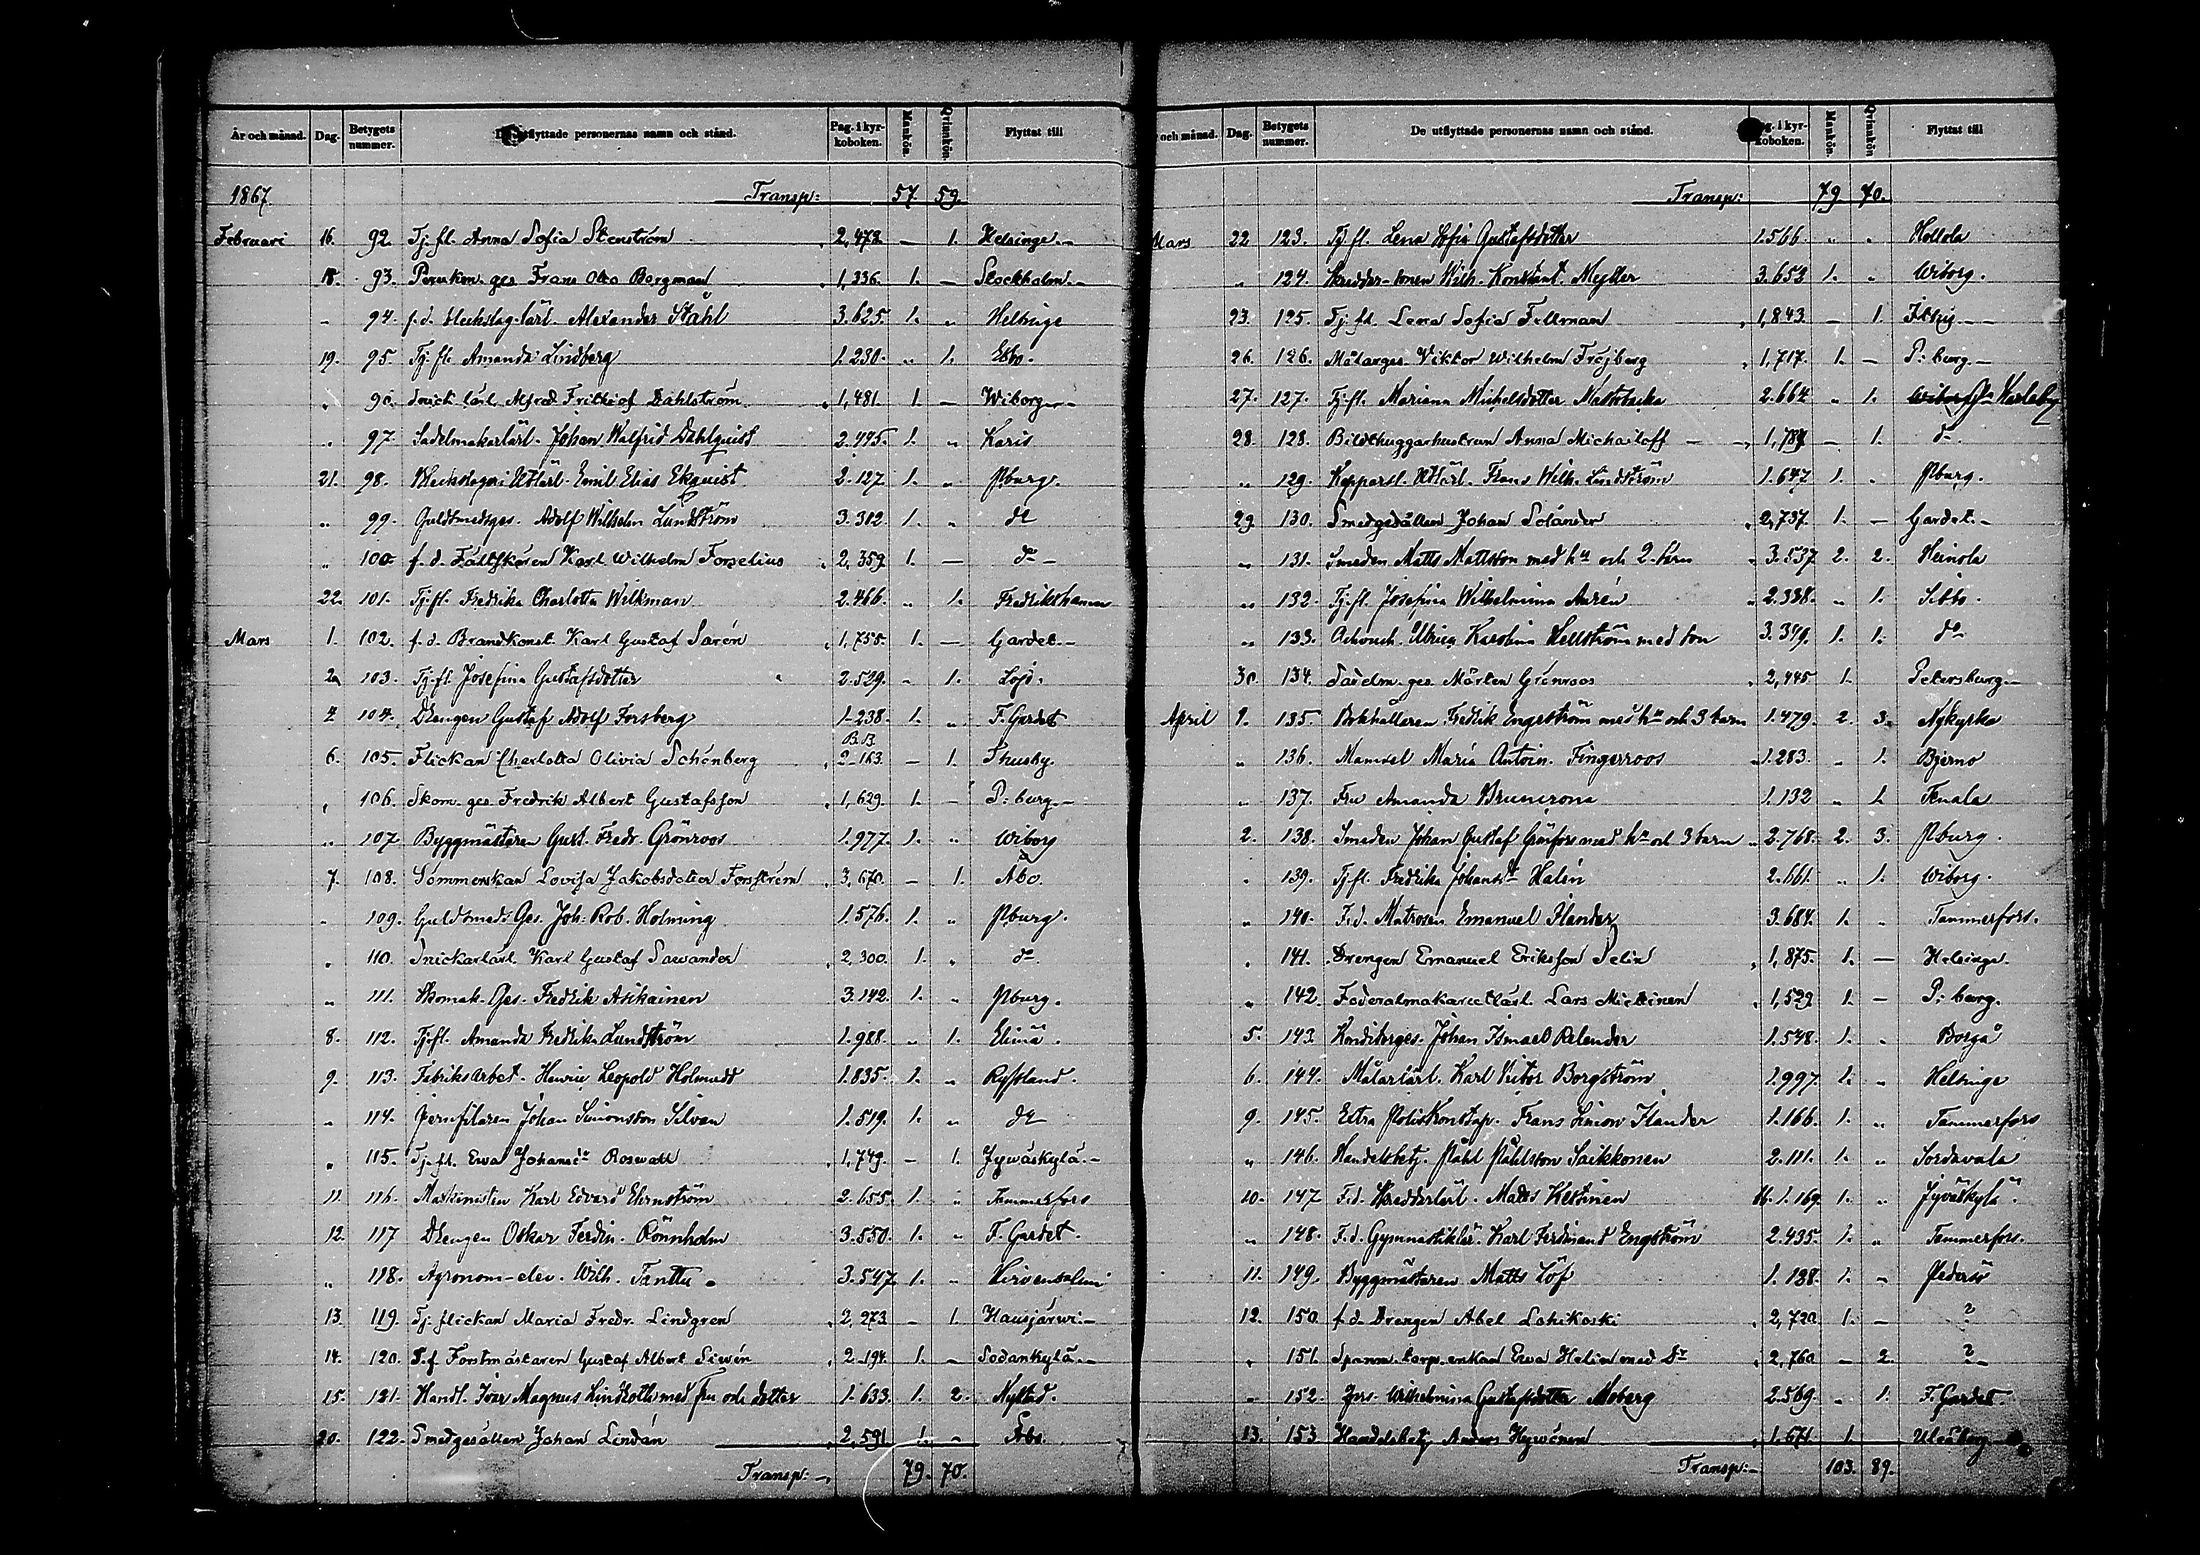 År och månad. Dag. Betygets nummer. De utflyttade personernas namn och stånd. Pag. i kyrkoboken. Mankön. Qvinnkön. Flyttat till
1867 Transp: 57. 59.
Februari 16. 92. Tj. fl. Anna Sofia Stenström 2,472 — 1. Helsinge.-
18. 93. Perukm. ges Frans Otto Borgman 1,336. 1. — Stockholm.-
- 94. f. d. Bleckslag. lärl. Alexander Ståhl 3.625. 1. " Helsinge
19. 95. Tj. fl. Amanda Lindberg 1.230. " 1. Esbo.
" 96. Snick. lärl. Alfred Frithiof Dahlström 1,481. 1. — Wiborg.-
" 97. Sadelmakarlärl. Johan Walfrid Dahlquist 2.445. 1. " Karis
21. 98. Bleckslageri Utlärl. Emil Elias Ekquist 2.127 1. " Pburg.
" 99. Guldsmedsges. Adolf Wilhelm Lundström 3.302. 1. " do
" 100. f. d. Fältskären Karl Wilhelm Forselius 2,359 1. — do
22. 101. Tj. fl. Fredrika Charlotta Wilkman 2.466. " 1. Fredrikshamn
Mars 1. 102. f. d. Brandkonst. Karl Gustaf Sarén 1,755. 1. — Gardet.-
2. 103. Tj. fl. Josefina Gustafsdotter 2.529. - 1. Lojo.
4 104. Drengen Gustaf Adolf Forsberg 1.238. 1. " F. Gardet
B.B.
6. 105. Flickan Charlotta Olivia Schönberg 2.163. — 1. Thusby.
" 106. Skom. ges. Fredrik Albert Gustafsson 1,629. 1. — P:burg.-
" 107 Byggmästaren Gust. Fredr. Grönroos 1.977. 1. " Wiborg
7. 108. Sömmerskan Lovisa Jakobsdotter Forsström 3,670. — 1. Åbo.
" 109. Guldsmeds Ges. Joh. Rob. Holming 1.576. 1. " Pburg.
" 110. Snickarlärl. Karl Gustaf Sawander 2,300. 1. " do
" 111. Skomak. Ges. Fredrik Asikainen 3.142. 1. " Pburg.
8. 112. Tj. fl. Amanda Fredrika Lundström 1.988. " 1. Elimä.
9. 113. Fabriksarbet. Henric Leopold Holmudd 1.835. 1. " Ryssland.
" 114. Johan Simonsson Silvan 1.519. 1. " do
" 115. Tj. fl. Ewa Johansdr Roswall 1,749. — 1. Jywäskylä.-
11. 116. Maskinisten Karl Edvard Ehrnström 2.655. 1. " Tammerfors
12. 117 Drengen Oskar Ferdin. Rönnholm 3.550. 1. " F. Gardet.
" 118. Agronom-elev. Wilh. Tanttu 3.547. 1. " Hirvensalmi
13. 119. Tj. flickan Maria Fredr. Lindgren 2,273. — 1. Hausjärwi.-
14. 120. T. f. Forstmästaren Gustaf Albert Siwén 2.194. 1. — Sodankylä.-
15. 121. Handl. Ivar Magnus Lindroth med fru och dotter 1.633. 1. 2. Nystad.
20. 122. Smedgesällen Johan Lindén 2,591 1. — Åbo.
Transp: 79. 70.
och månad. Dag. Betygets nummer. De utflyttade personernas namn och stånd. Pag. i kyrkoboken. Mankön. Qvinnkön Flyttat till
Transp: 79 70.
Mars 22 123. Tj. fl. Lena Sofia Gustafsdotter 1.566. " " Hollola
" 124. Skredder-sonen Wilh. Konstant. Meyller 3.653 1. " Wiborg.
23. 125. Tj. fl. Lena Sofia Fellman 1,843. — 1.
26. 126. Målarges. Viktor Wilhelm Fröjberg 1,717. 1. — P:burg.-
27. 127. Tj. fl. Mariana Michelsdotter 2.664 " 1. Wiborg Gl- Karleby
28. 128. Bildthuggarhustrun Anna Michailoff 1,787 — 1. do
" 129. Kopparsl. Utlärl. Frans Wilh. Lindström 1.647 1. " Pburg.
29 130. Smedgesällen Johan Solander 2,737. 1. — Gardet.-
" 131. Smeden Matts Mattsson med hu och 2 barn 3.537 2. 2. Heinola
" 132. Tj. fl. Josefina Wilhelmina Aurén 2.388. " 1. Sibbo.
" 133. Ulrica Karolina Hellström med son 3.349. 1. 1. do
30. 134. Sadelm. ges. Mårten Grönroos 2,445 1. Petersburg.-
April 1. 135. Bokhållaren Fredrik Engström med hu och 3 barn 1.479. 2. 3. Nykyrka
" 136. Mamsel Maria Antoin. Fingerroos 1.283. " 1. Bjerno
" 137. Fru Amanda Brunerona 1.132 " 1. Tenala
2. 138. Smeden Johan Gustaf Grönfors med hu och 3 barn 2.768. 2. 3. Pburg.
" 139. Tj. fl. Fredrika Johansdr Halén 2.661. " 1. Wiborg.
" 140. F. d. Matrosen Emanuel Ilander 3.684. 1. " Tammerfors.
" 141. Drengen Emanuel Eriksson Selin 1,875. 1. — Helsinge.
" 142. Foderalmakarelärl. Lars Miettinen 1,529 1. — P:burg.
5. 143. Konditorges. Johan Ismael Relander 1.548. 1. " Borgå
6. 144. Målarlärl. Karl Victor Borgström 1.997 1. " Helsinge
9. 145. Extra Poliskonstap. Frans Simon Ilander 1.166. 1. " Tammerfors
" 146. Handelsbetj. Påhl Påhlsson Saikkonen 2.111. 1. " Sordavala
10. 147 F. d. Skredderlärl. Matts Kestinen 1.169. 1. " Jyväskylä.
" 148. F. d. Gymnastiklär. Karl Ferdinand Engström 2.435. 1. " Tammerfors.
11. 149. Byggmästaren Matts Löf 1.138. 1. " Pedersö
12. 150. f. d. Drengen Abel Lahikoski 2,720. 1. — ?
" 151. Spanm. torps. enkan Ewa Helin med Dr 2,760 — 2. ?
" 152. Wilhelmina Gustafsdotter Moberg 2.569. " 1. F. Gardet.
13. 153. Handelsbetj. Anders Hywönen 1.671. 1. Uleåborg
Transp: 103. 89.